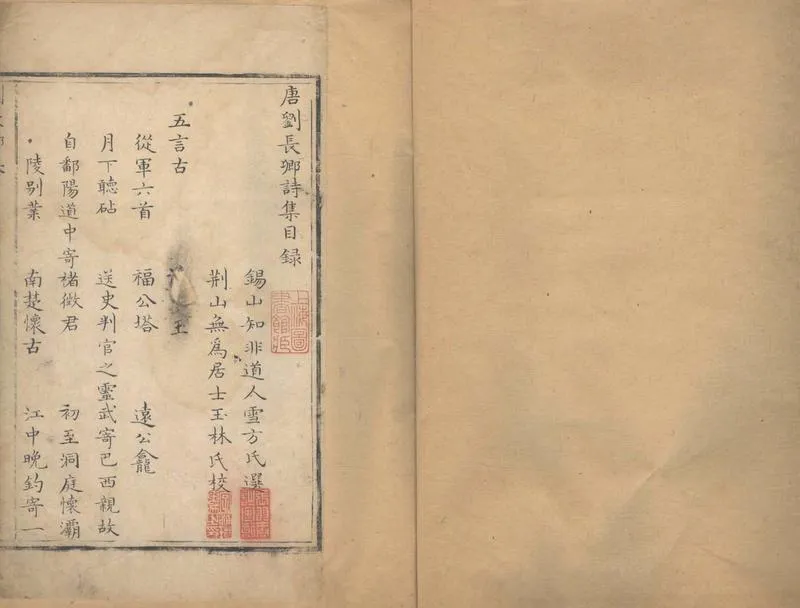 唐劉長卿詩集目録
錫山知非道人雪方氏選
荆山無爲居士玉林氏校
五言古
從軍六首 福公塔 遠公龕
月下聽砧 送史判官之靈武寄巴西親故
自鄱陽道中寄褚徵君 初至洞庭懷灞
陵别業 南楚懷古 江中晚釣寄一
上海圖書館藏